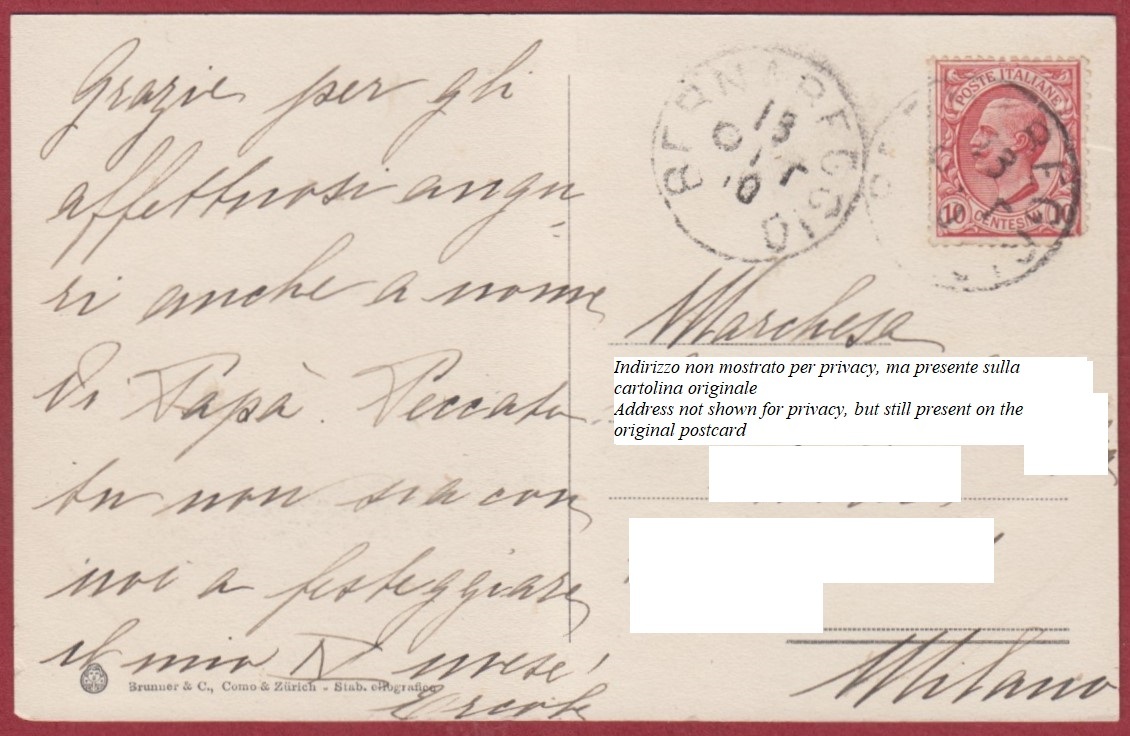 Grazie per gli
affettuosi augu=
ri anche a nome
di Papà. Peccato
tu non sia con
noi a festeggiare
il mio V mese!
Ercole
Brunner & C., Como & Zürich - Stab. eliografico
BERNAREGGIO
13
10
POSTE ITALIANE
10 CENTESIMI 10
Marchesa
Indirizzo non mostrato per privacy, ma presente sulla
cartolina originale
Address not shown for privacy, but still present on the
original postcard
Milano